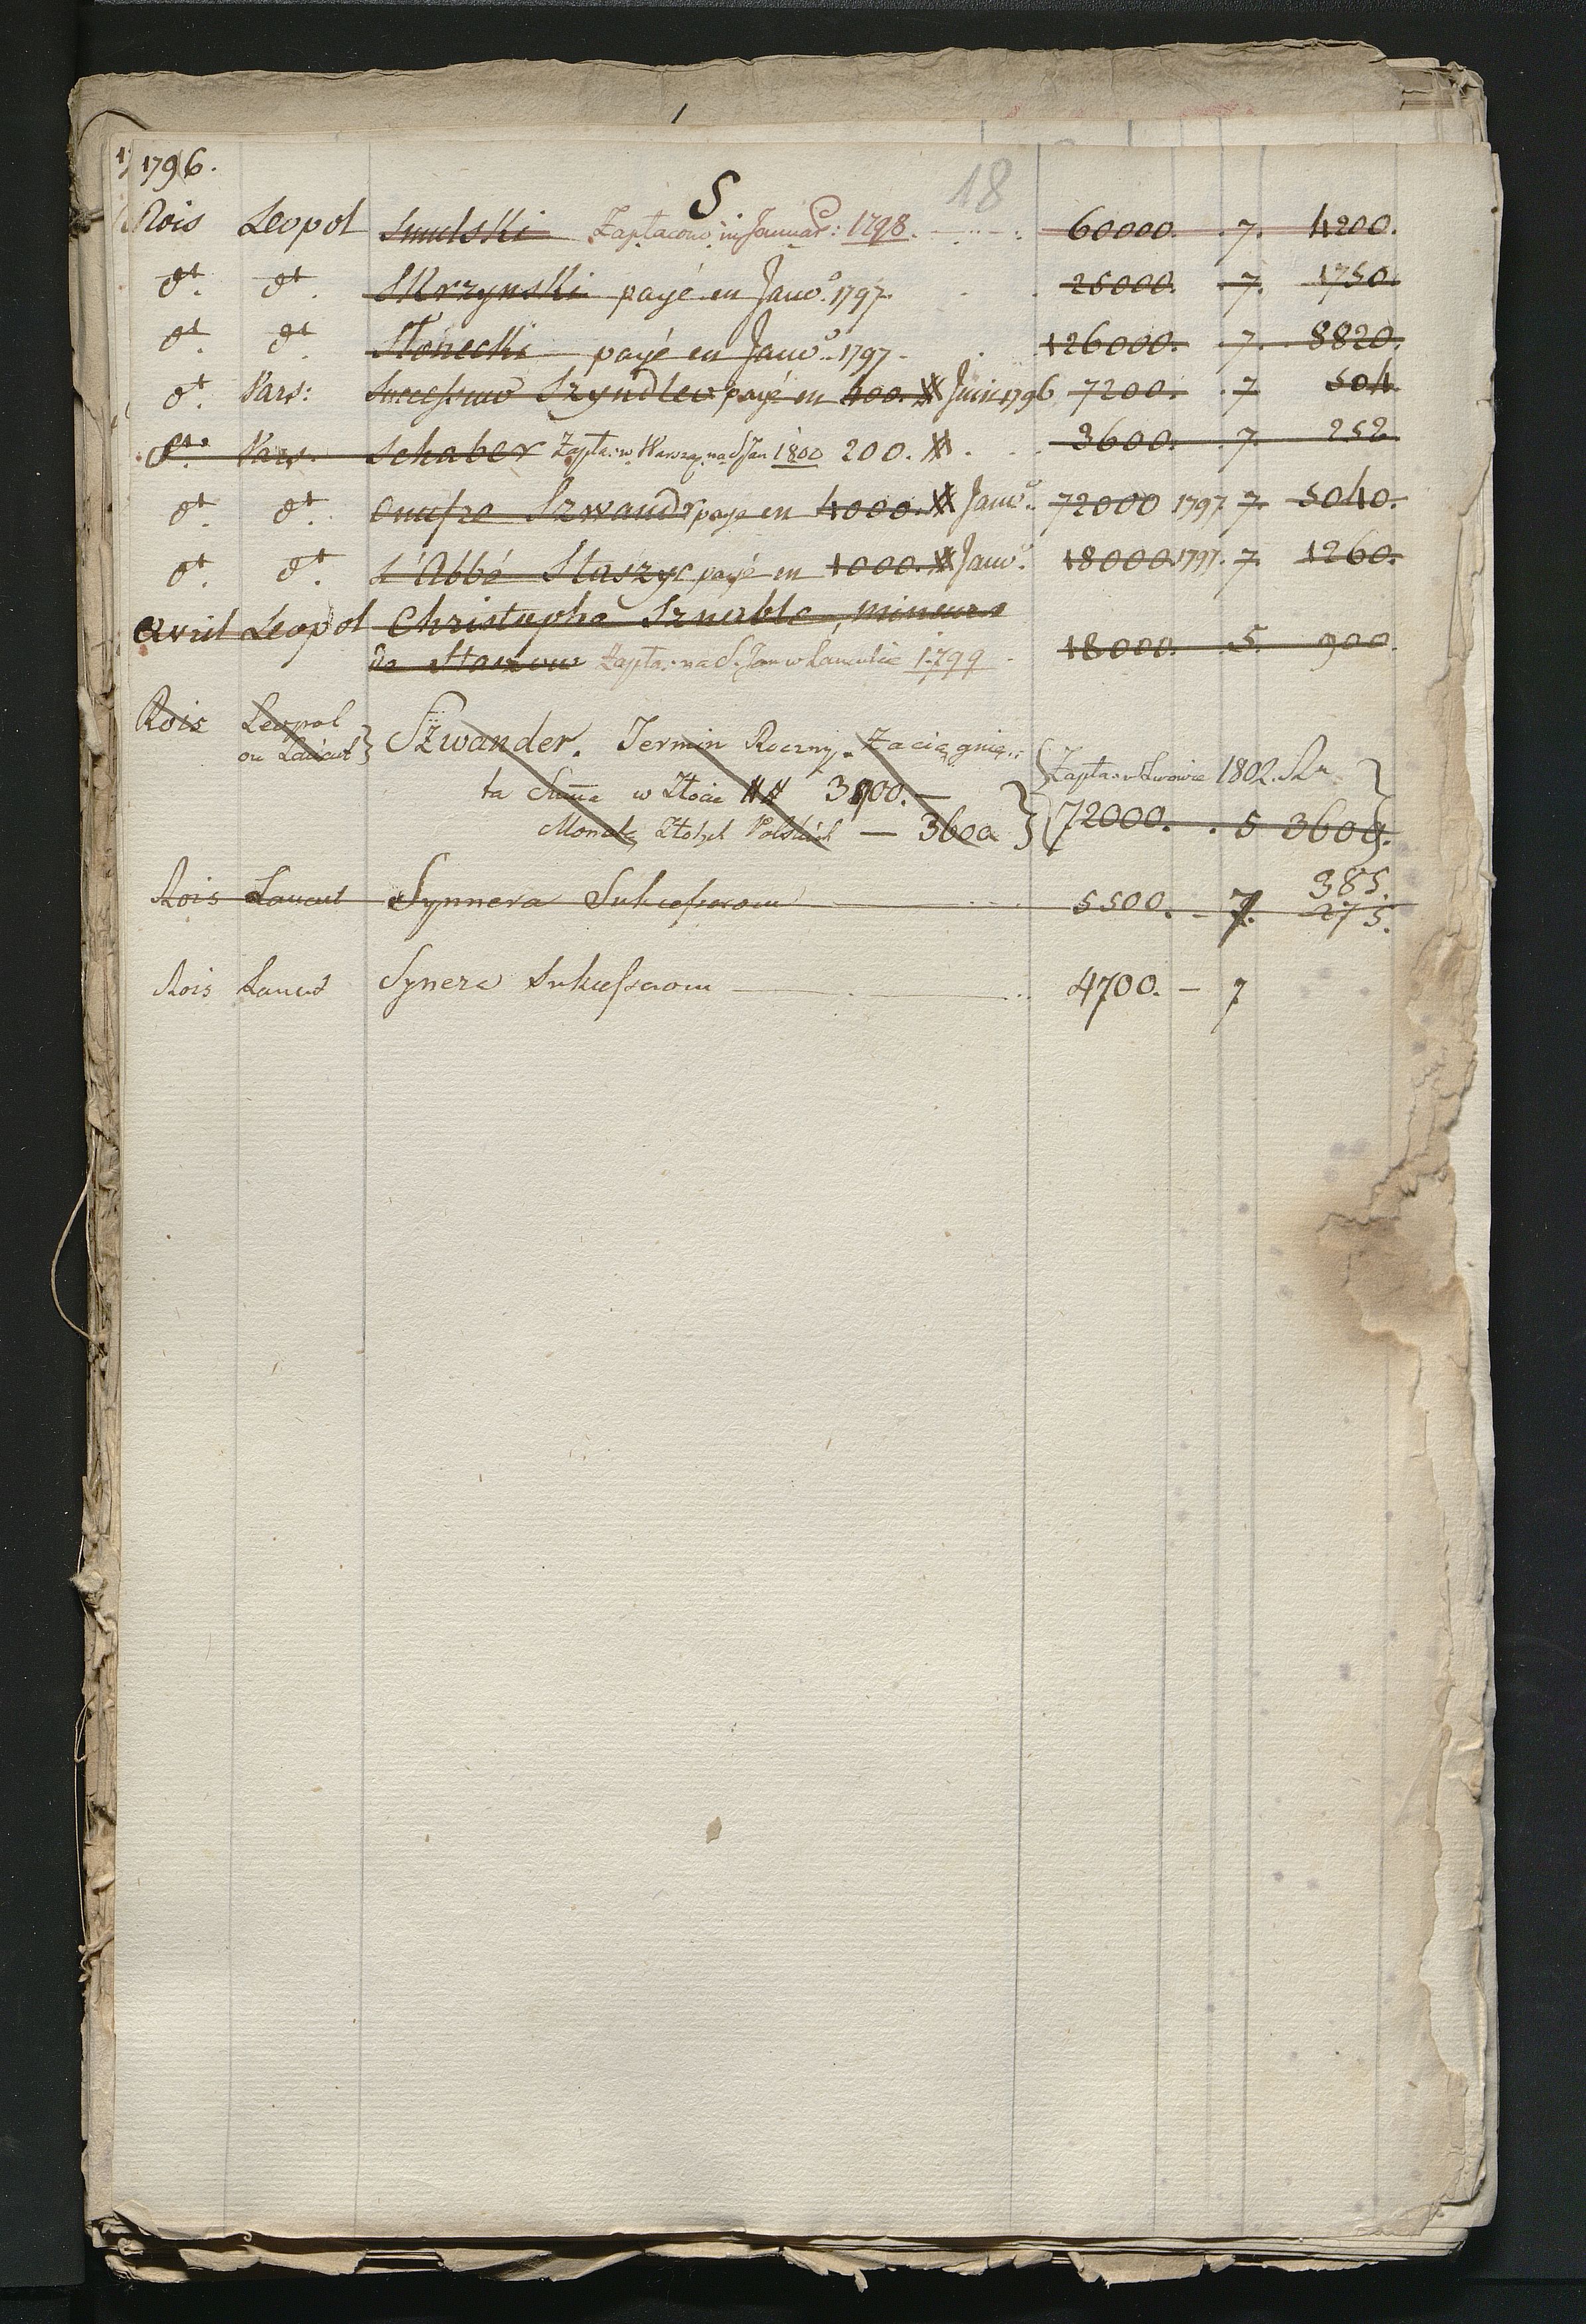 1796.
S
18
Rois Leopol Smulski Zapłacono in Januar: 1798. 60000. 7. 4200.
dt. dt. Skrzynski payé en Janvo. 1797. 25000. 7. 1750.
dt. dt. Słonecki payé en Janvo. 1797. 126000. 7. 8820.
dt. Vars: Szyndler payé en 400. # Juin 1796 7200. 7 504
dto. Vars. Schaber Zapła: w Warsza. na S Jan 1800 200. # 3600. 7. 252
dt. dt. Szwandr payé en 4000. # Janvo. 72000 1797. 7. 5040.
dt. dt. l'Abbé Staszyc payé en 1000. # Janvo. 18000 1797. 7. 1260.
Avril Leopol Christophe mineurs
de Zapła: na S. Jan w Lancucie 1799 18000. 5. 900.
Rois Leopol Szwander. Termin Roczny. Zaciągnię:
ou Lańcut ta Suma w Złocie ## 3800.— Zapła: w Lwowie 1802.
Monetą Złotych Polskich — 3600 72000. 5 3600.
Rois Lancut Synnera Sukcessorom 5500. - 7. 385.
275.
Rois Lancut Synera Sukcessorom 4700. — 7